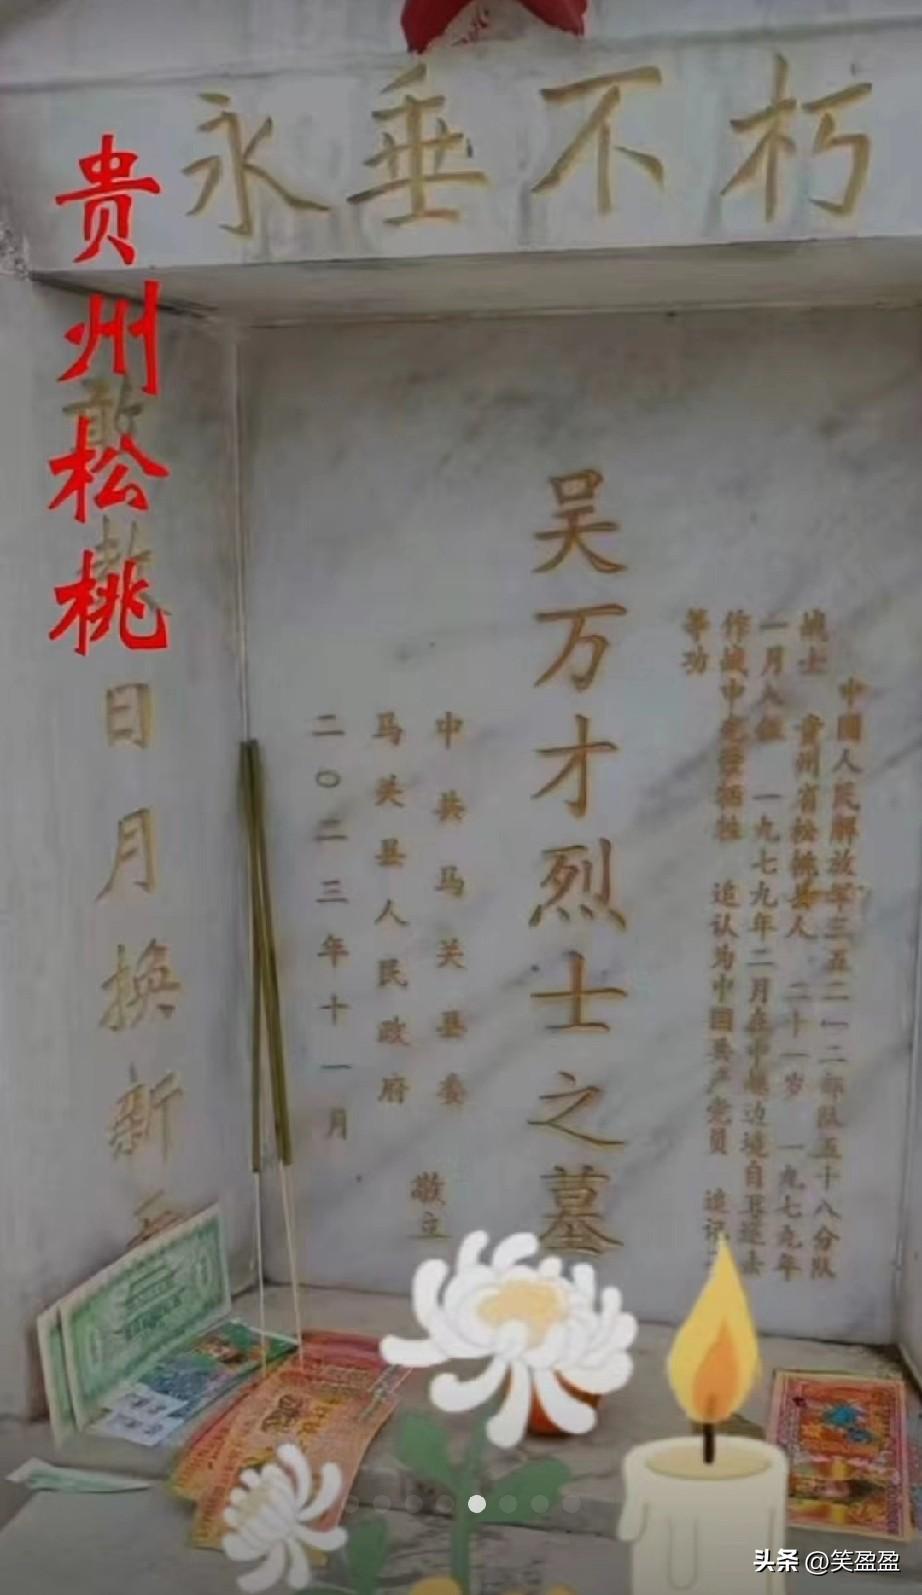 永垂不朽
贵州松桃
中国人民解放军三五二一二部队五十八分队
战士 贵州省松桃县人 二十一岁 一九七九年
一月入伍 一九七九年二月在中越边境自卫还击
作战中光荣牺牲 追认为中国共产党员 追记
等功
吴万才烈士之墓
中共马关县委
马关县人民政府
敬立
二〇二三年十一月
敢教日月换新
头条 @笑盈盈